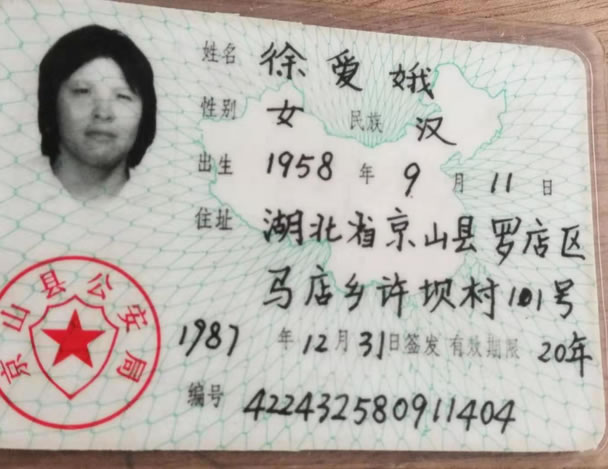 姓名 徐爱娥
性别 女 民族 汉
出生 1958 年 9 月 11 日
住址 湖北省京山县罗店区
马店乡许坝村101号
1987 年 12 月 31 日签发 有效期限 20年
编号 422432580911404
京山县公安局